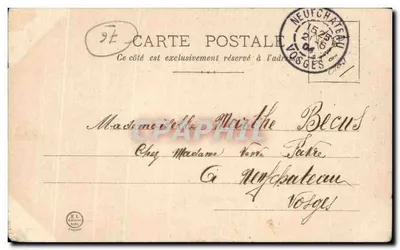 76
CARTE POSTALE
Ce côté est exclusivement réservé à l'adresse
NEUFCHATEAU
VOSGES
Mademoiselle Marthe Becus
Chez Madame Vve
à Neufchateau
Vosges